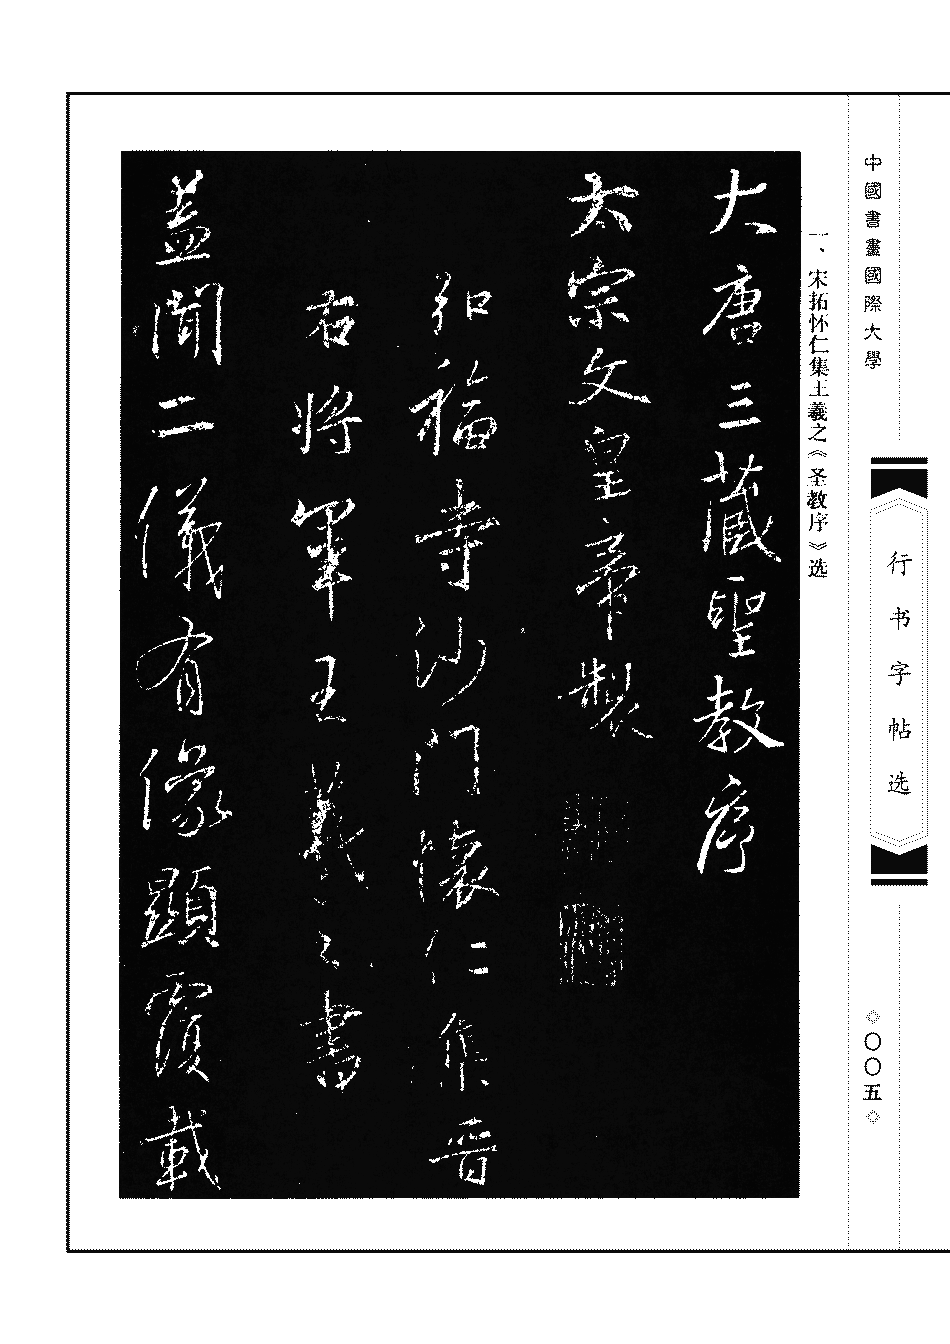 中國書畫國際大學
行书字帖选
〇〇五
一、宋拓怀仁集王羲之《圣教序》选
大唐三藏聖教序
太宗文皇帝製
弘福寺沙門懷仁集晋
右將軍王羲之書
蓋聞二儀有像顯覆載